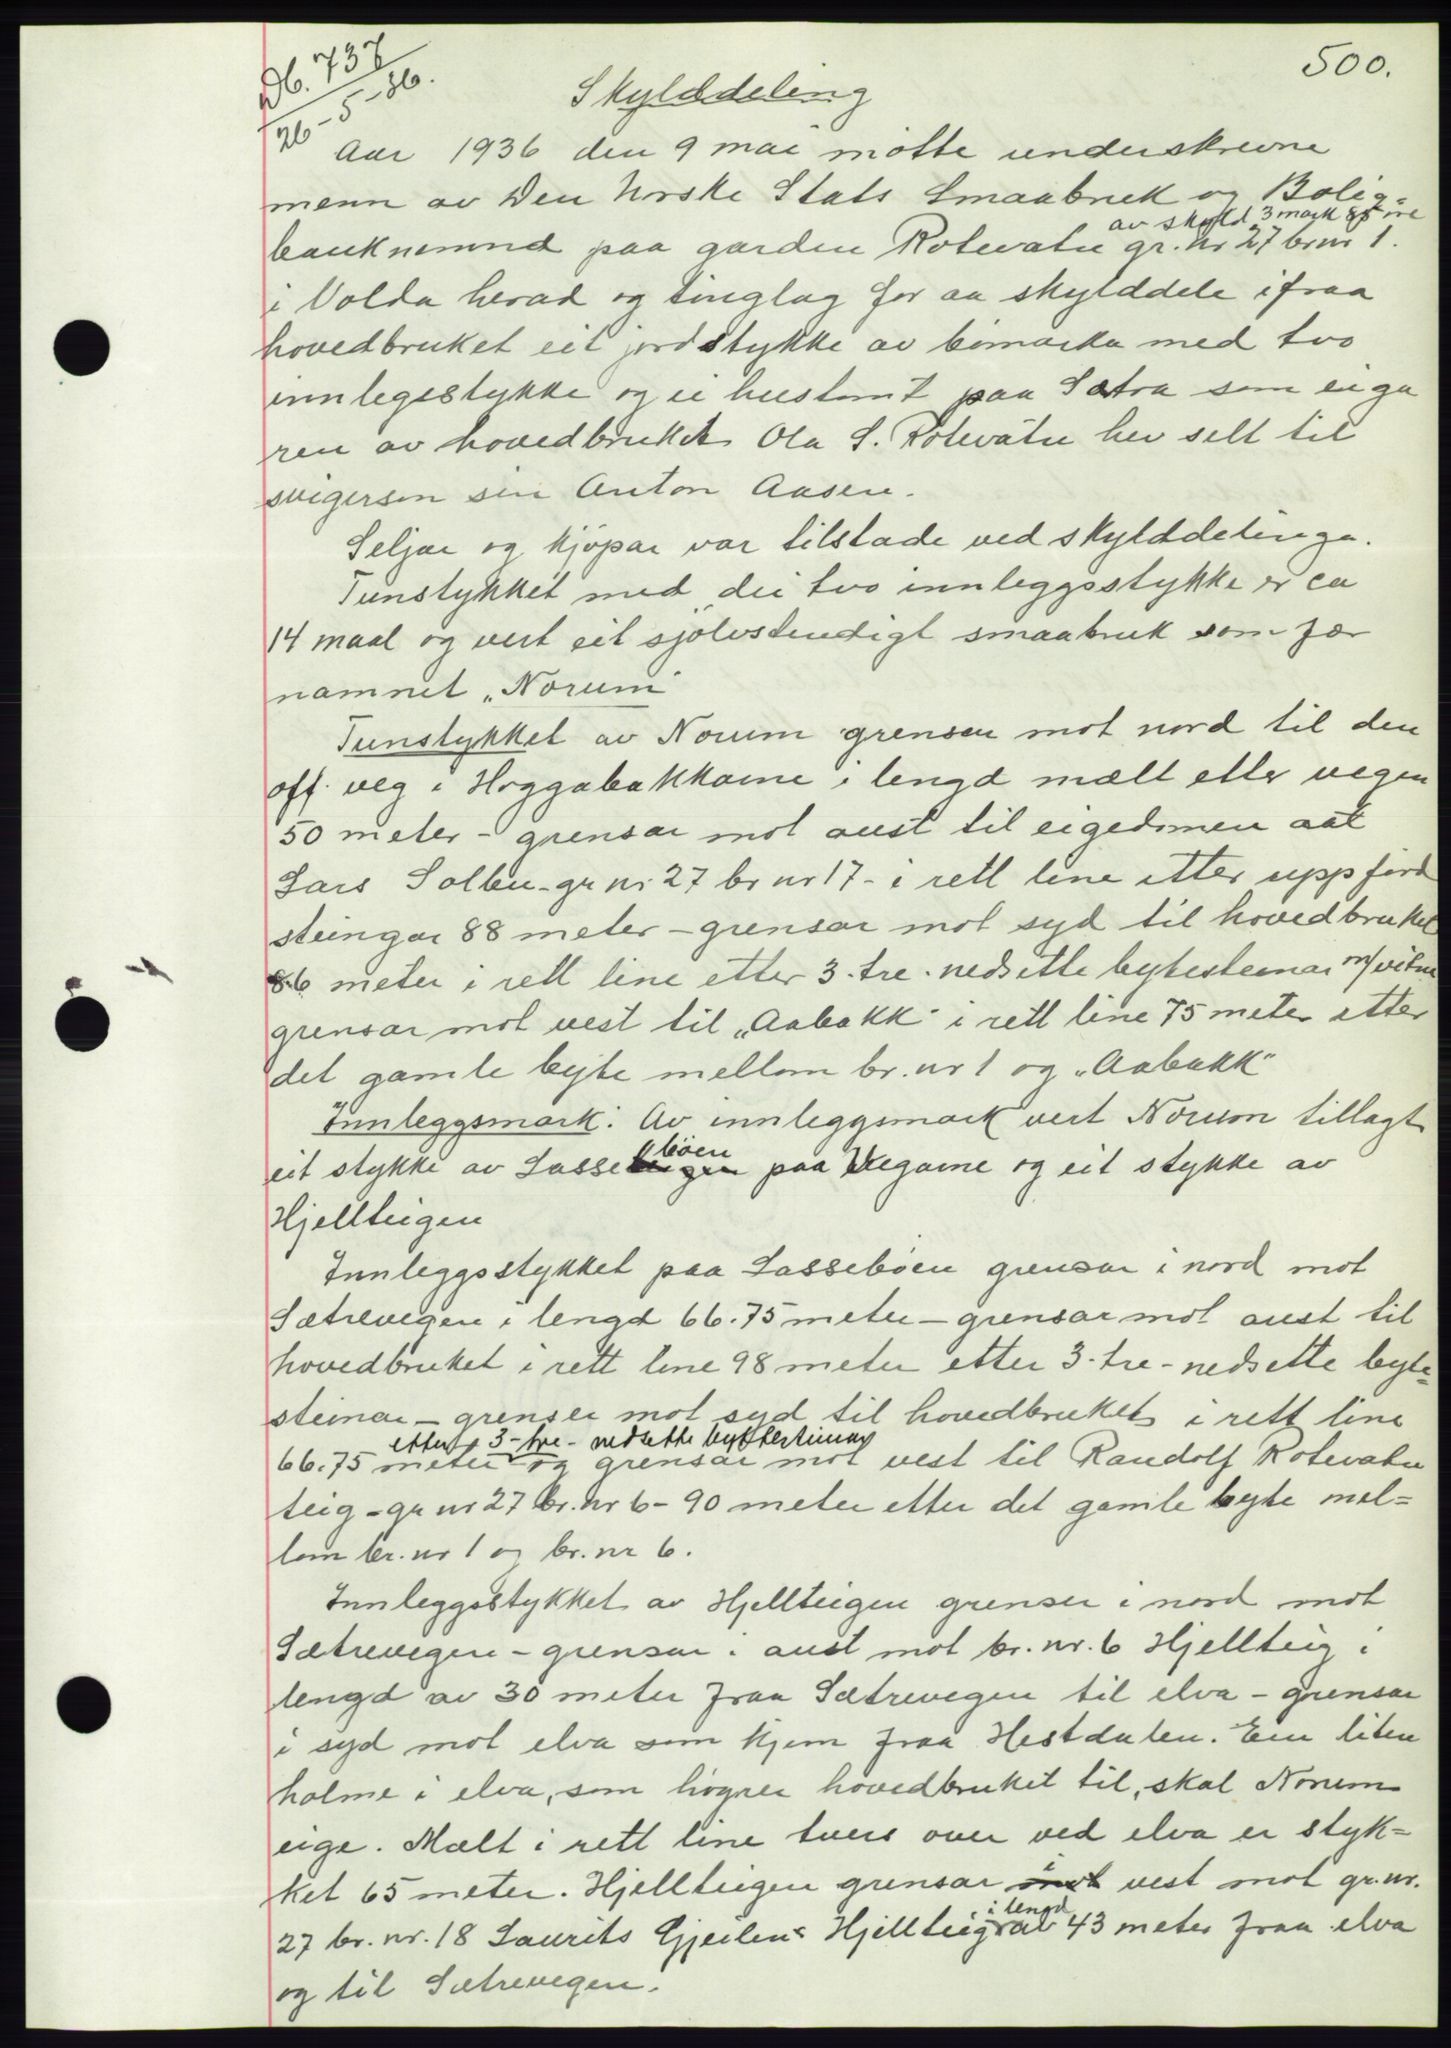 500.
Db. 737
26-5-36.
Skylddeling
Aar 1936 den 9 mai møtte underskrevne
menn av Den Norske Stats Smaabruk og Bolig=
av skyld 3 mark 85 øre
banknemnd paa garden Rotevatn gr. nr 27 br nr 1.
i Volda herad og tinglag for aa skylddele ifraa
hovedbruket eit jordstykke av bømarka med two
innlegsstykke og ei hustomt paa Sætra som eiga
ren av hovedbruket Ola S. Rotevatn hev selt til
svigerson sin Anton Aasen.
Seljar og kjøpar var tilstade ved skylddelinga.
Tunstykket med dei two innleggsstykke er ca
14 maal og vert eit sjølvstendigt smaabruk som fær
namnet „Norum"
Tunstykket av Norum grensar mot nord til den
off. veg i Hoggabakkane i lengd mælt etter vegen
50 meter - grensar mot aust til eigedomen aat
Lars Solbu - gr nr 27 br nr 17 - i rett line etter uppførd
steingar 88 meter - grensar mot syd til hovedbruket
86 meter i rett line etter 3-tre-nedsette bytesteinar m/vitne
grensar mot vest til „Aabakk" i rett line 75 meter etter
det gamle byte mellom br. nr 1 og „Aabakk"
Innleggsmark: Av innleggsmark vert Norum tillagt
bøen
eit stykke av Lasseteigen paa Vegane og eit stykke av
Hjellteigen
Innleggsstykket paa Lassebøen grensar i nord mot
Sætrevegen i lengd 66.75 meter - grensar mot aust til
hovedbruket i rett line 98 meter etter 3-tre-nedsette byte=
steinar - grensar mot syd til hovedbruket i rett line
etter 3-tre- nedsette byttesteinar
66.75 meter og grensar mot vest til Randolf Rotevatn
teig - gr nr 27 br. nr 6 - 90 meter etter det gamle byte mel=
lom br. nr 1 og br. nr 6.
Innleggsstykket av Hjellteigen grensar i nord mot
Sætrevegen - grensar i aust mot br. nr. 6 Hjellteig i
lengd av 30 meter fraa Sætrevegen til elva - grensar
i syd mot elva som kjem fraa Hestdalen. Ein liten
holme i elva, som høyrer hovedbruket til, skal Norum
eige. Mælt i rett line tvers over ved elva er styk=
i
ket 65 meter. Hjellteigen grensar mot vest mot gr. nr.
i lengd
27 br. nr. 18 Laurits Gjeilens Hjellteig av 43 meter fraa elva
og til Sætrevegen.